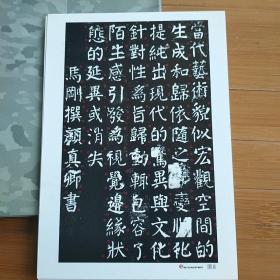 當代藝術貌似宏觀空間的
生成和歸依隨之化
提純出現代的異與文化
針對性爲旨歸動輒包容了
陌生感引發爲視覺邊緣狀
態的延異或消失
馬剛撰顏真卿書